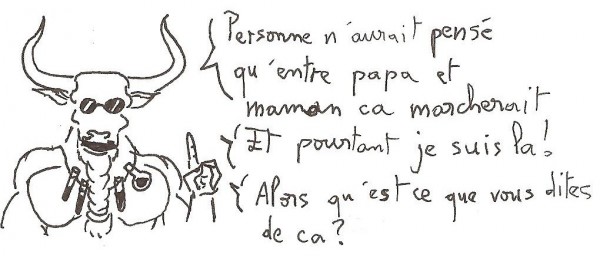 Personne n'aurait pensé
qu'entre papa et
maman ca marcherait
Et pourtant je suis la!
Alors qu'est ce que vous dites
de ca?